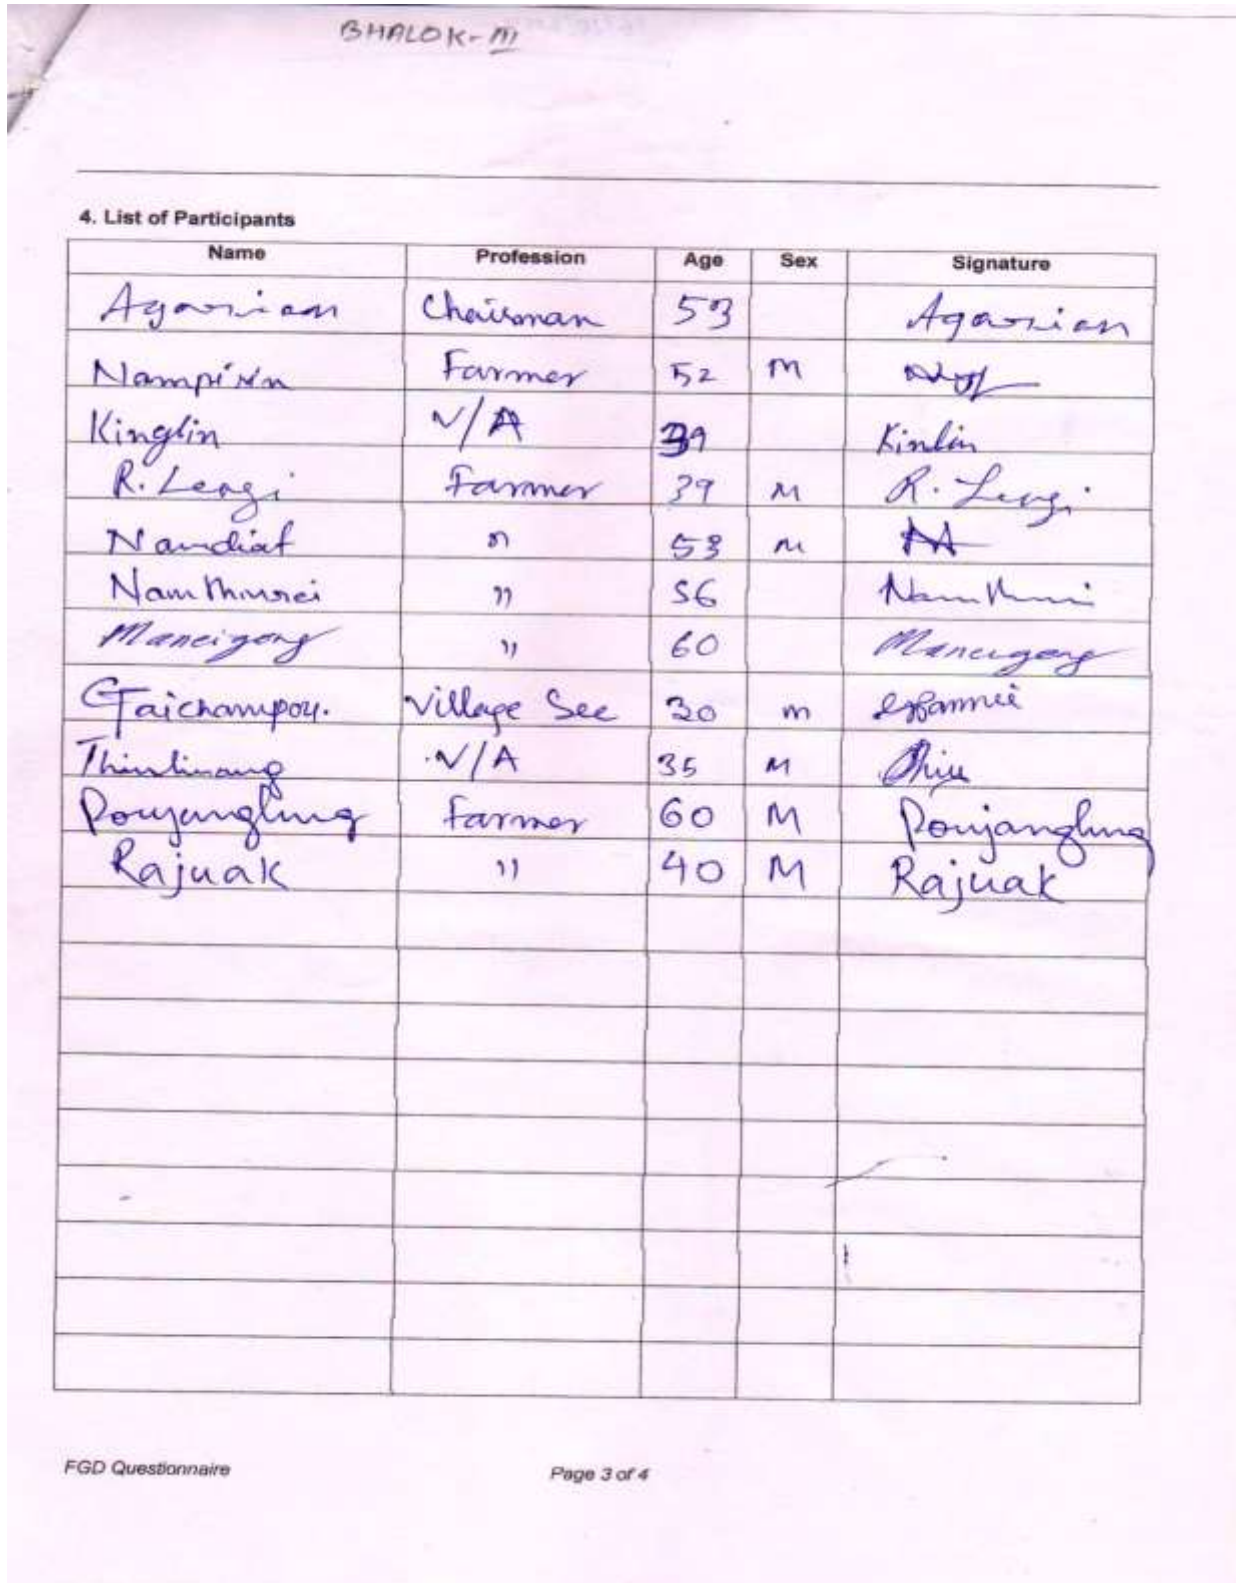 BHALOK-III
4. List of Participants
Name Profession Age Sex Signature
Agarian Chairman 53 Agarian
Nampirin Farmer 52 M
Kinglin N/A 39 Kinlin
R. Lengi Farmer 39 M R. Lengi
Namdiat " 53 M
Namthiurei " 56
Maneigong " 60 Maneigong
Gaichampou. Village Sec 30 m
Thiulinang N/A 35 M
Poujanglung Farmer 60 M Poujanglung
Rajuak " 40 M Rajuak
FGD Questionnaire Page 3 of 4